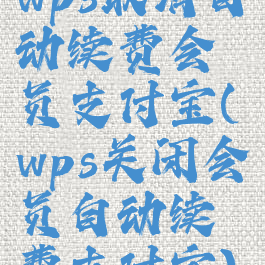 wps取消自
动续费会
员支付宝(
wps关闭会
员自动续
费支付宝)